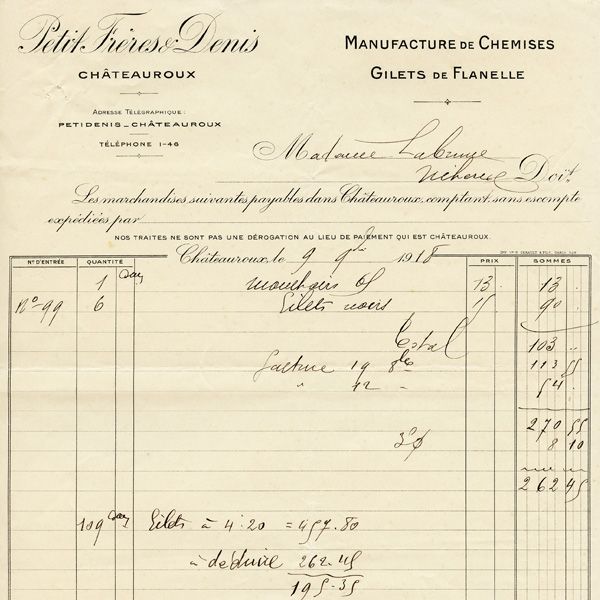 Petit Frères & Denis
CHÂTEAUROUX
ADRESSE TÉLÉGRAPHIQUE:
PETIDENIS_CHÂTEAUROUX
TÉLÉPHONE 1-46
MANUFACTURE DE CHEMISES
GILETS DE FLANELLE
Madame Labrune
Doit
Les marchandises suivantes payables dans Châteauroux, comptant, sans escompte
expédiées par
NOS TRAITES NE SONT PAS UNE DÉROGATION AU LIEU DE PAIEMENT QUI EST CHÂTEAUROUX.
Châteauroux, le 9 9bre 1918
N° D'ENTRÉE QUANTITÉ PRIX SOMMES
1 13 13
N° 99 6 Gilets noirs 15 90
Total 103
Facture 19 8bre 113 55
" 42 54
270 55
3% 8 10
262 45
109 Gilets à 4.20 = 457.80
à déduire 262.45
195.35